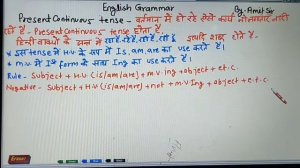 English Grammar
By:- Amit Sir
Present Continuous tense - वर्तमान में हो रहे ऐसे कार्य
रहे हैं - Present Continuous tense होता है।
हिन्दी वाक्यों के अन्त में रहा है, रहे है, रही है, रहा हूँ इत्यादि शब्द होते है-
* इस tense में H.V. के रूप में Is, am, are का use करते हैं।
* M.V. में Ist form के साथ Ing का use करते हैं।
Rule - Subject + H.V (is/am/are) + m.v ing + object + etc.
Negative - Subject + H.V (is/am/are) + not + m.v Ing + object + e.t.c.
Eraser